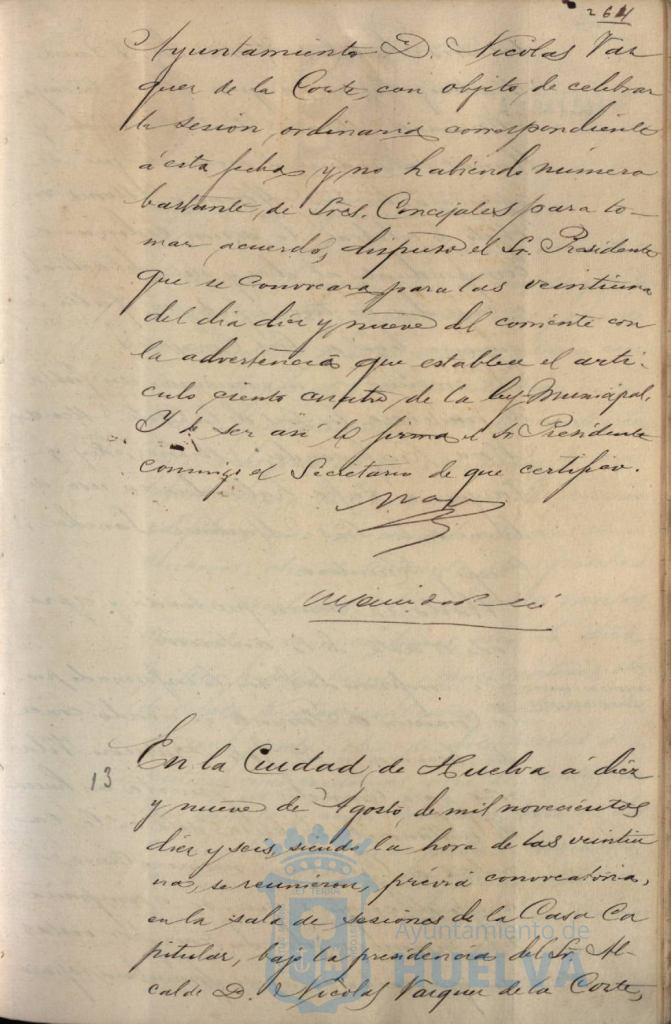 264
Ayuntamiento D. Nicolas Vaz
quez de la Corte, con objeto, de celebrar
la sesion, ordinaria correspondiente
á esta fecha y no habiendo número
bastante, de Sres. Concejales para to-
mar acuerdo, dispuso el Sr. Presidente
que se convocara para las veintiuna
del dia diez y nueve del corriente con
la advertencia que establece el arti-
culo ciento cuatro, de la ley Municipal.
Y de ser asi lo firma el Sr. Presidente
conmigo el Secretario de que certifico.
13
En la Cuidad, de Huelva á diez
y nueve de Agosto, de mil novecientos
diez y seis, siendo la hora de las veintiu
na, se reunieron, prévia convocatoria,
en la sala de sesiones de la Casa Ca
pitular, bajo la presidencia del Sr. Al-
calde D. Nicolas Vazquez de la Corte,
Ayuntamiento de
HUELVA